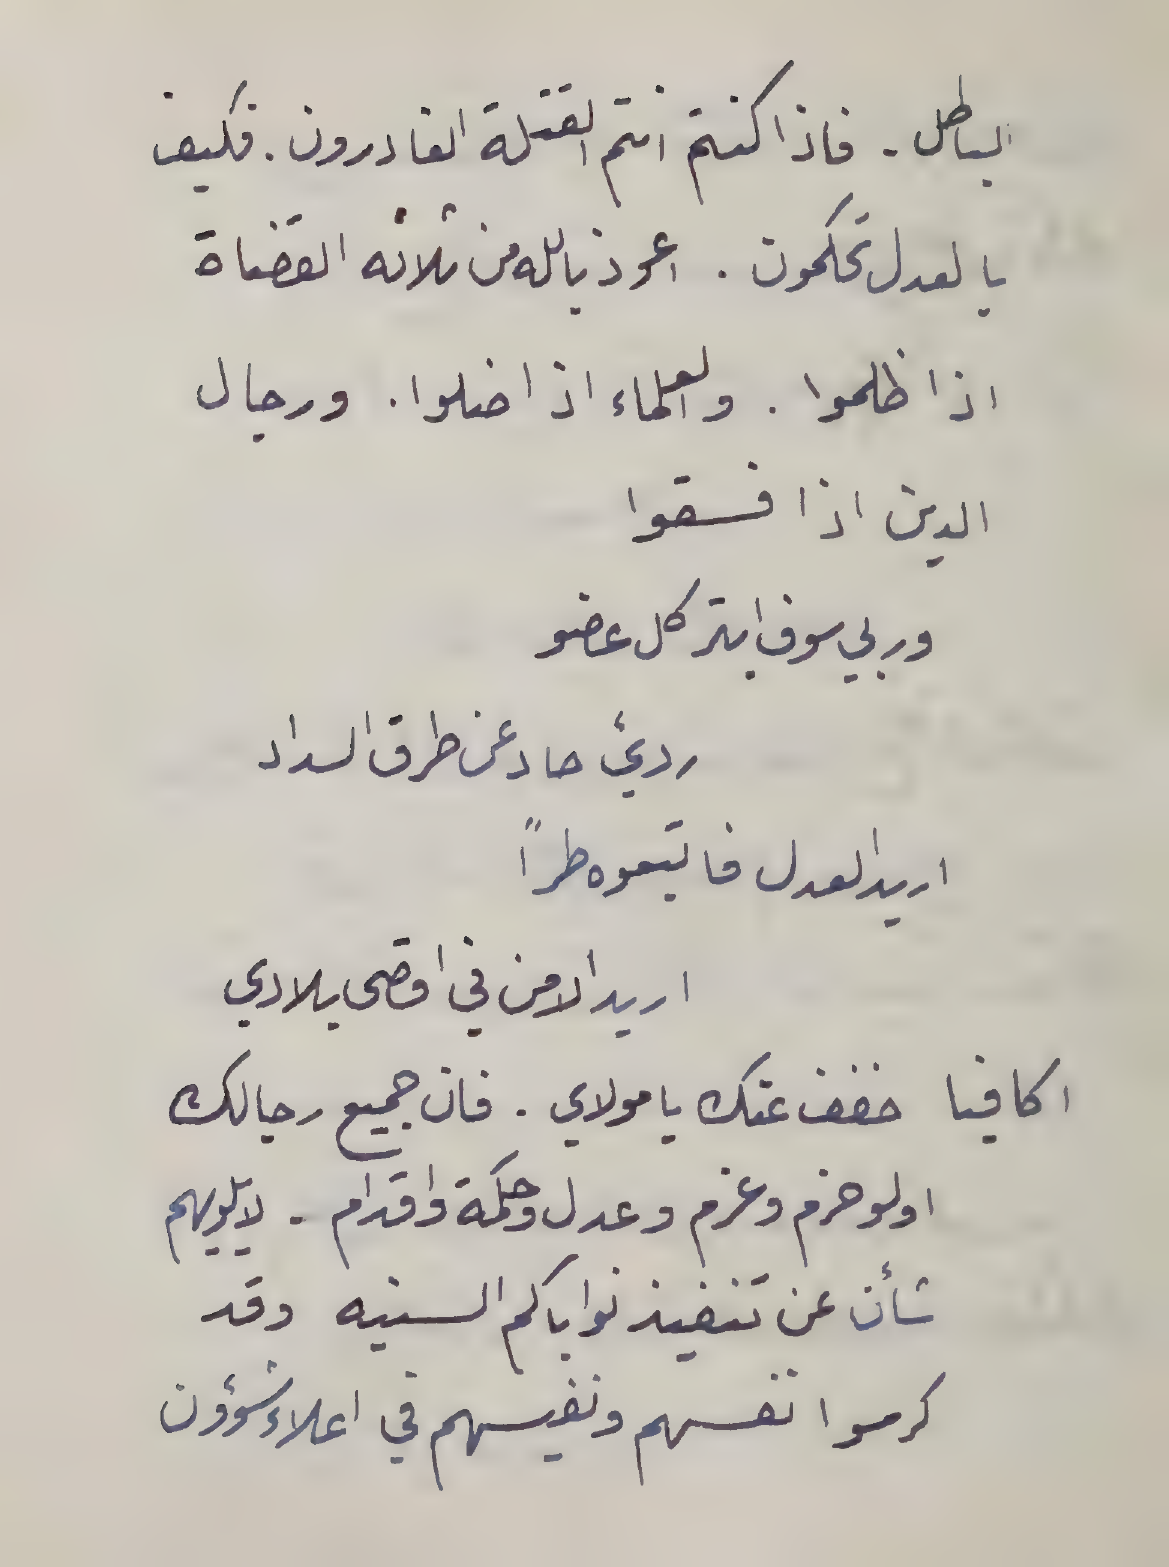 الباطل . فاذا كنتم انتم القتلة الغادرون . فكيف
بالعدل تحكمون . اعوذ بالله من ثلاثه القضاة
اذا ظلموا . والعلماء اذا ضلوا . ورجال
الدين اذا فسقوا
وربي سوف ابتر كل عضو
رديئ حاد عن طرق السداد
اريد العدل فاتبعوه طراً
اريد الامن في اقصى بلادي
اكافينا خفف عنك يا مولاي . فان جميع رجالك
اولو حزم وعزم وعدل وحكمة واقدام . لا يلويهم
شأن عن تنفيذ نواياكم السنيه وقد
كرسوا نفسهم ونفيسهم في اعلاء شؤون